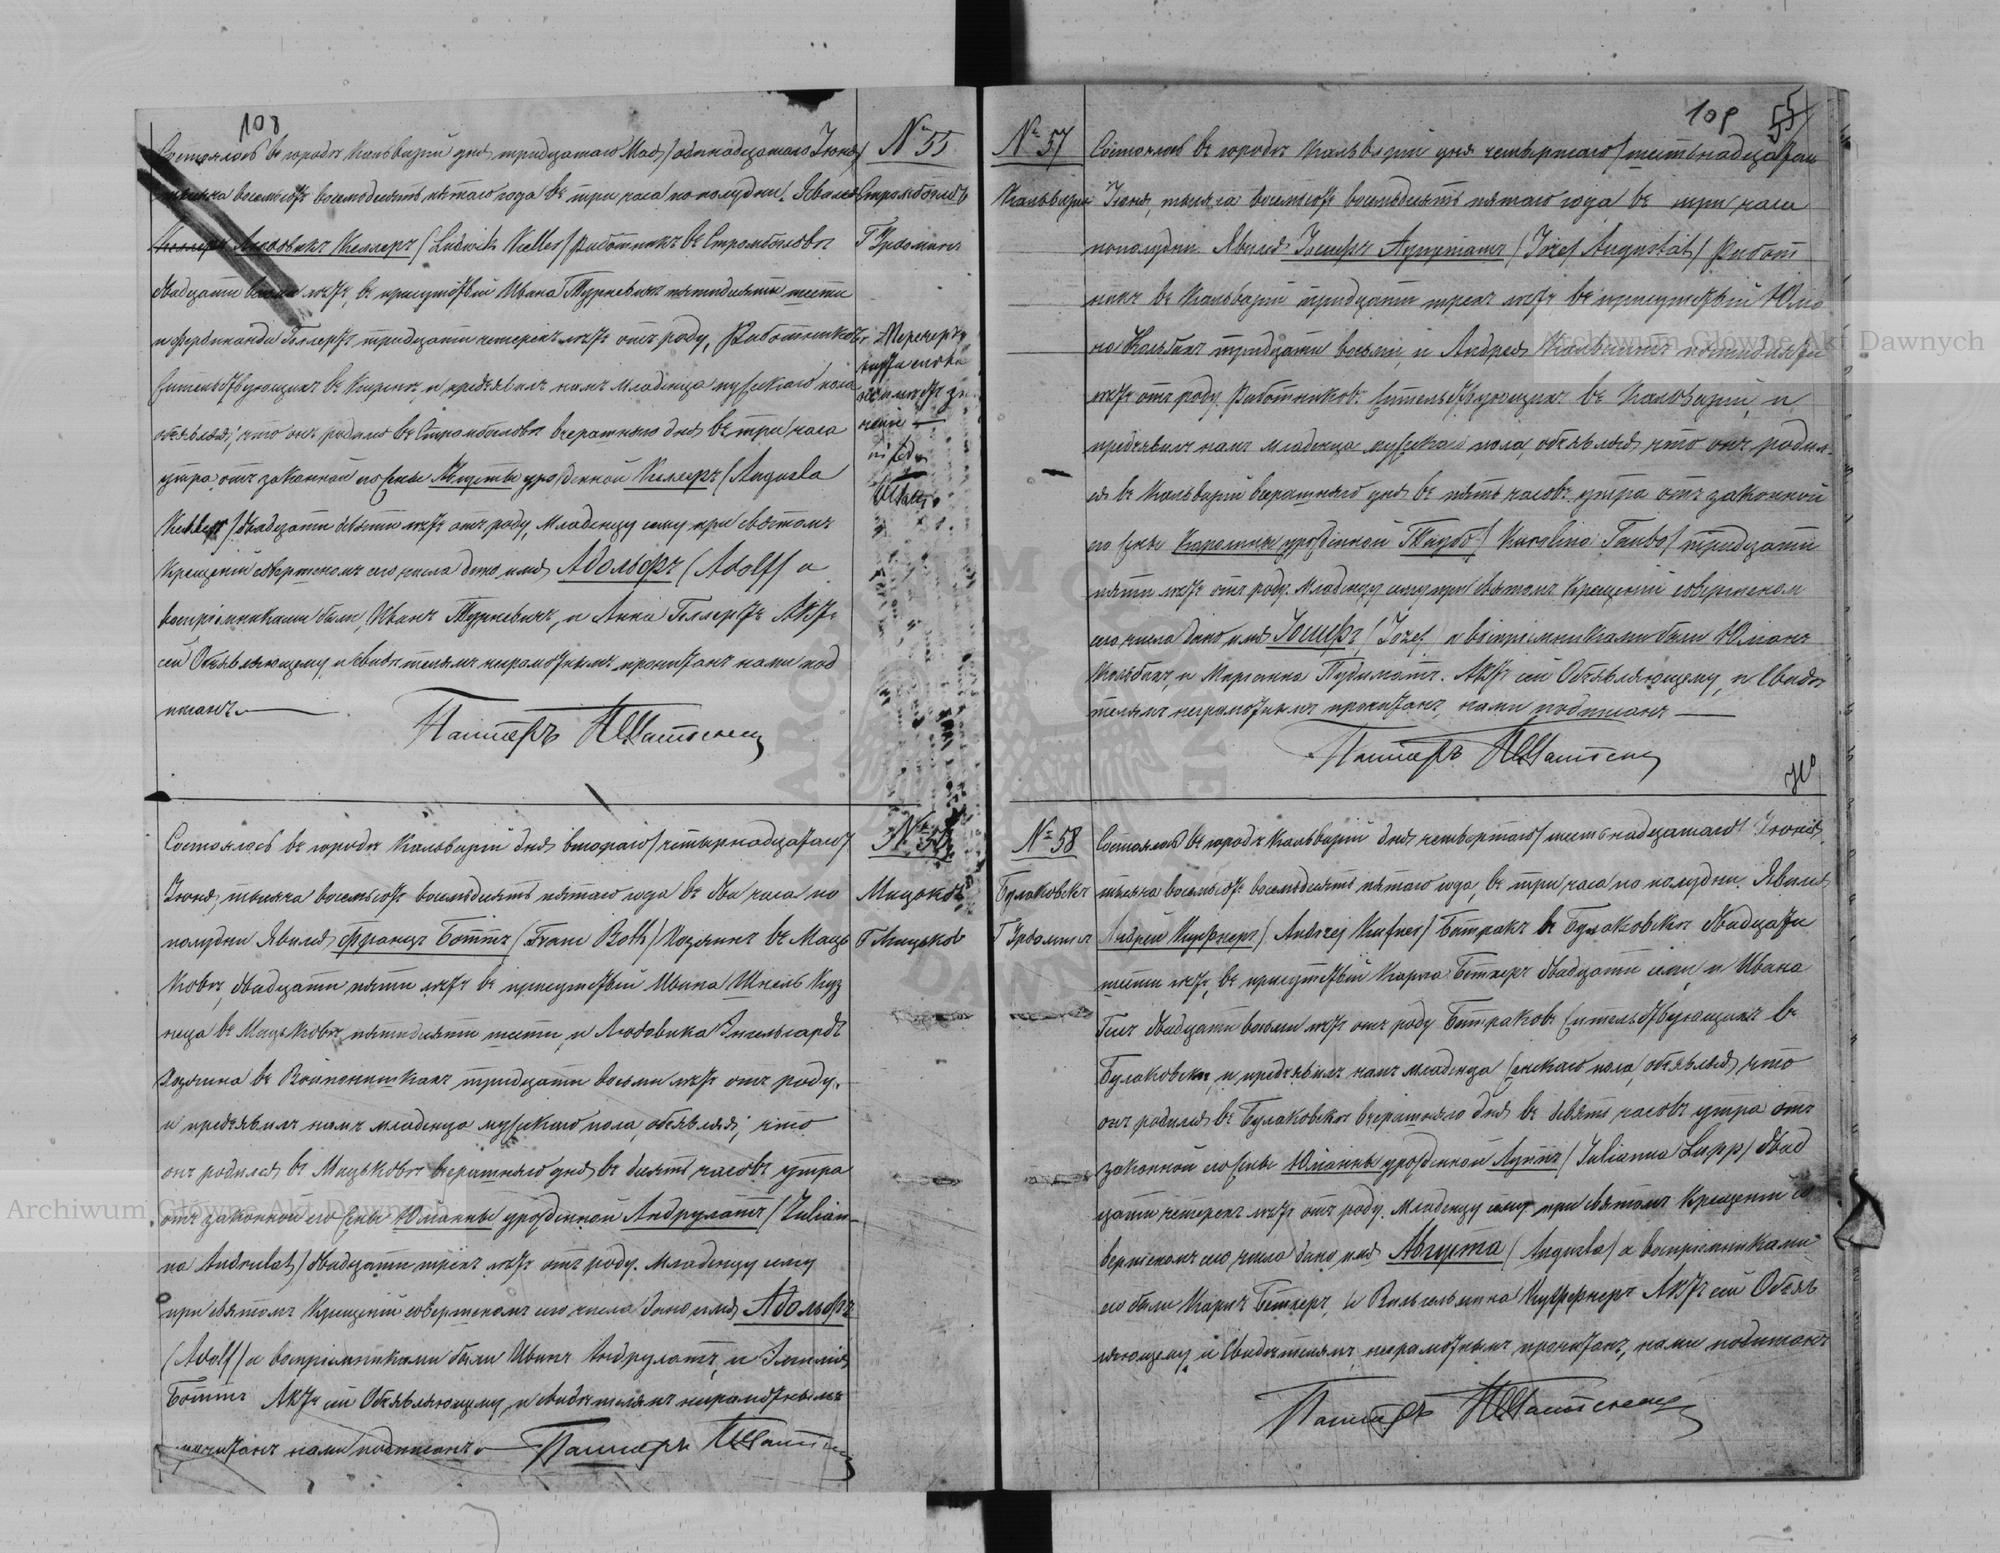 108
№ 55
Стромболовъ
Г Урдоминъ
Состоялось въ городѣ Кальваріи дня тридцатаго Мая /одинадцатаго Іюня/
тысяча восемьсотъ восемдесятъ пятаго года въ три часа по полудни. Явился
Людовикъ Келлеръ /Ludwik Keller/ работникъ въ Стромболовѣ
двадцати восьми лѣтъ, въ присутствіи Ивана Туркевичъ пятидесяти шести
и Фердинанда Геллертъ тридцати четерехъ лѣтъ отъ роду, Работниковъ
Жительствующихъ въ и предъявилъ намъ младенца мужскаго пола
объявляя, что онъ родился въ Стромболовѣ вчерашняго дня въ три часа
утра, отъ законной его жены Августы урожденной Келлеръ /Augusta
Keller/ двадцати девяти лѣтъ отъ роду, Младенцу сему при святомъ
Крещеніи совершеномъ сего числа дано имя Адольфъ (Adolf/ а
воспріемниками были Иванъ Туркевичъ, и Анна Геллертъ Актъ
сей Объявляющему и свидѣтелямъ неграмотнымъ прочитанъ нами под
писанъ.
Пасторъ
Состоялось въ городѣ Кальваріи дня втораго /четырнадцатаго/
Мацьковъ
Іюня, тысяча восемьсотъ восемьдесятъ пятаго года въ два часа по
полудни Явился Францъ Боттъ (Franc Bott/ Хозяинъ въ Маць
Г Мацьков
ковѣ, двадцати пяти лѣтъ въ присутствіи Ивана Шнель Куз
неца въ Мацьковѣ пятидесяти шести, и Людовика Энгельгардъ
Хозяина въ тридцати восьми лѣтъ отъ роду,
и предъявилъ намъ младенца мужскаго пола, объявляя; что
онъ родился въ Мацьковѣ вчерашняго дня въ десять часовъ утра
отъ законной его жены Юліанны урожденной Андрулатъ /Julian-
na Andrulat/ двадцати трехъ лѣтъ отъ роду. Младенцу сему
при святомъ Крещеніи совершеномъ сего числа дано имя Адольфъ
(Adolf/ а воспріемниками были Иванъ Андрулатъ, и Эмилія
Боттъ Актъ сей Объявляющему, и свидѣтелямъ неграмотнымъ
прочитанъ нами подписанъ. Пасторъ
109
55
№ 57
Кальварія
Состоялось въ городѣ Кальваріи дня четвертаго /шестьнадцатаго
Іюня, тысяча восемьсотъ восемьдесятъ пятаго года въ три часа
пополудни. Явился Іосифъ Аугустатъ /Józef Augustat/ Работ
никъ въ Кальваріи тридцати трехъ лѣтъ въ присутствіи Юліа
на Кольбакъ тридцати восьми, и Андрея пятидесяти
лѣтъ отъ роду Работниковъ Жительствующихъ въ Кальваріи, и
предъявилъ намъ младенца мужскаго пола, объявляя что онъ родил-
ся въ Кальваріи вчерашняго дня въ пять часовъ утра отъ законной
его жены Каролины урожденной Таубъ / Karolina Taub/ тридцати
пяти лѣтъ отъ роду. Младенцу сему при святомъ Крещеніи совершеном
сего числа дано имя Іосифъ /Józef а воспріемниками были Юліанъ
Кольбакъ, и Маріанна Актъ сей Объявляющему, и Свидѣ
телямъ неграмотнымъ прочитанъ, нами подписанъ
Пасторъ
№ 58
Булаковскъ
Состоялось въ городѣ Кальваріи дня четвертаго /шестьнадцатаго/ Іюня,
тысяча восемьсотъ восемьдесятъ пятаго года, въ три часа по полудни. Явился
Андрей Куфнеръ /Andrzej Kufner/ Батракъ въ Булаковскѣ двадцати
шести лѣтъ, въ присутствіи Карла Беткеръ двадцати семи, и Ивана
двадцати восьми лѣтъ отъ роду Батраковъ Жительствующихъ въ
Булаковскѣ, и предъявилъ намъ младенца женскаго пола, объявляя, что
онъ родился въ Булаковскѣ вчерашняго дня въ девять часовъ утра отъ
законной его жены Юліанны урожденной Луппъ / Julianna Lupp/ двад
цати четерехъ лѣтъ отъ роду. Младенцу сему при святомъ Крещеніи со
вершеномъ сего числа дано имя Августа / Augusta/ а воспріемниками
его были Карлъ Беткеръ, и Вильгельмина Куффнеръ Актъ сей Объяв
ляющему, и Свидѣтелямъ неграмотнымъ прочитанъ, нами подписанъ
Пасторъ
Archiwum Główne Akt Dawnych
Archiwum Główne Akt Dawnych